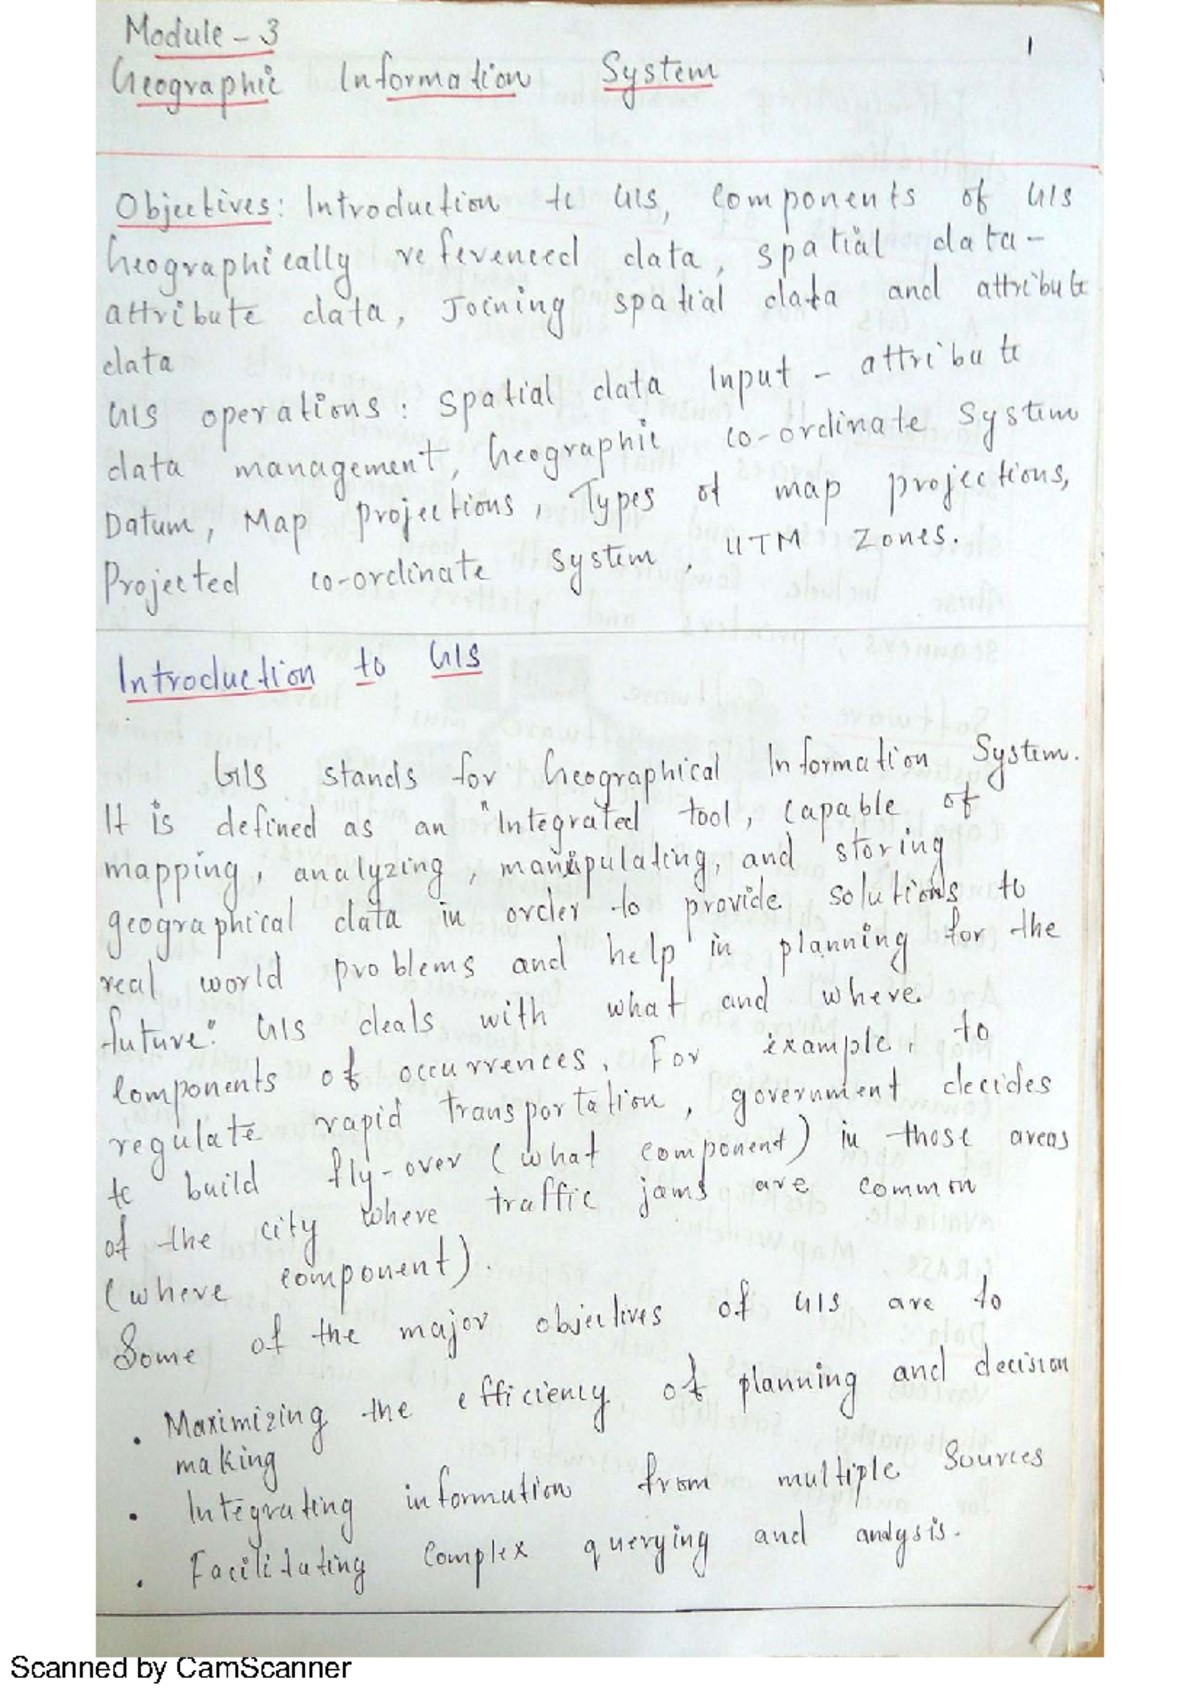 Module - 3
1
Geographic Information System
Objectives: Introduction to GIS, Components of GIS
Geographically referenced data, spatial data -
attribute data, Joining spatial data and attribute
data
GIS operations: Spatial data Input - attribute
data management, Geographic co-ordinate System
Datum, Map projections, Types of map projections,
Projected co-ordinate system, UTM Zones.
Introduction to GIS
GIS stands for Geographical Information System.
It is defined as an "Integrated tool, capable of
mapping, analyzing, manipulating, and storing
geographical data in order to provide solutions to
real world problems and help in planning for the
future." GIS deals with what and where.
Components of occurrences. For example, to
regulate rapid transportation, government decides
to build fly-over (what component) in those areas
of the city where traffic jams are common
(where component).
Some of the major objectives of GIS are to
• Maximizing the efficiency of planning and decision
making
• Integrating information from multiple Sources
• Facilitating Complex querying and analysis.
Scanned by CamScanner